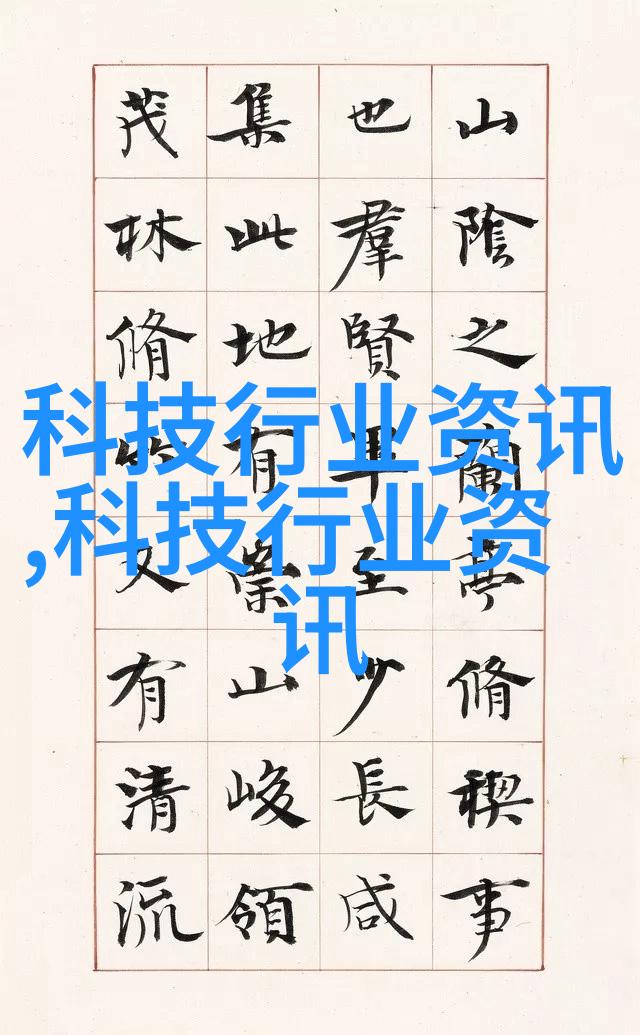 山陰之蘭亭脩稧事
也羣賢畢至少長咸
集此地有崇山峻領
茂林脩竹又有清流
科技行业资讯
,科技行业资
讯